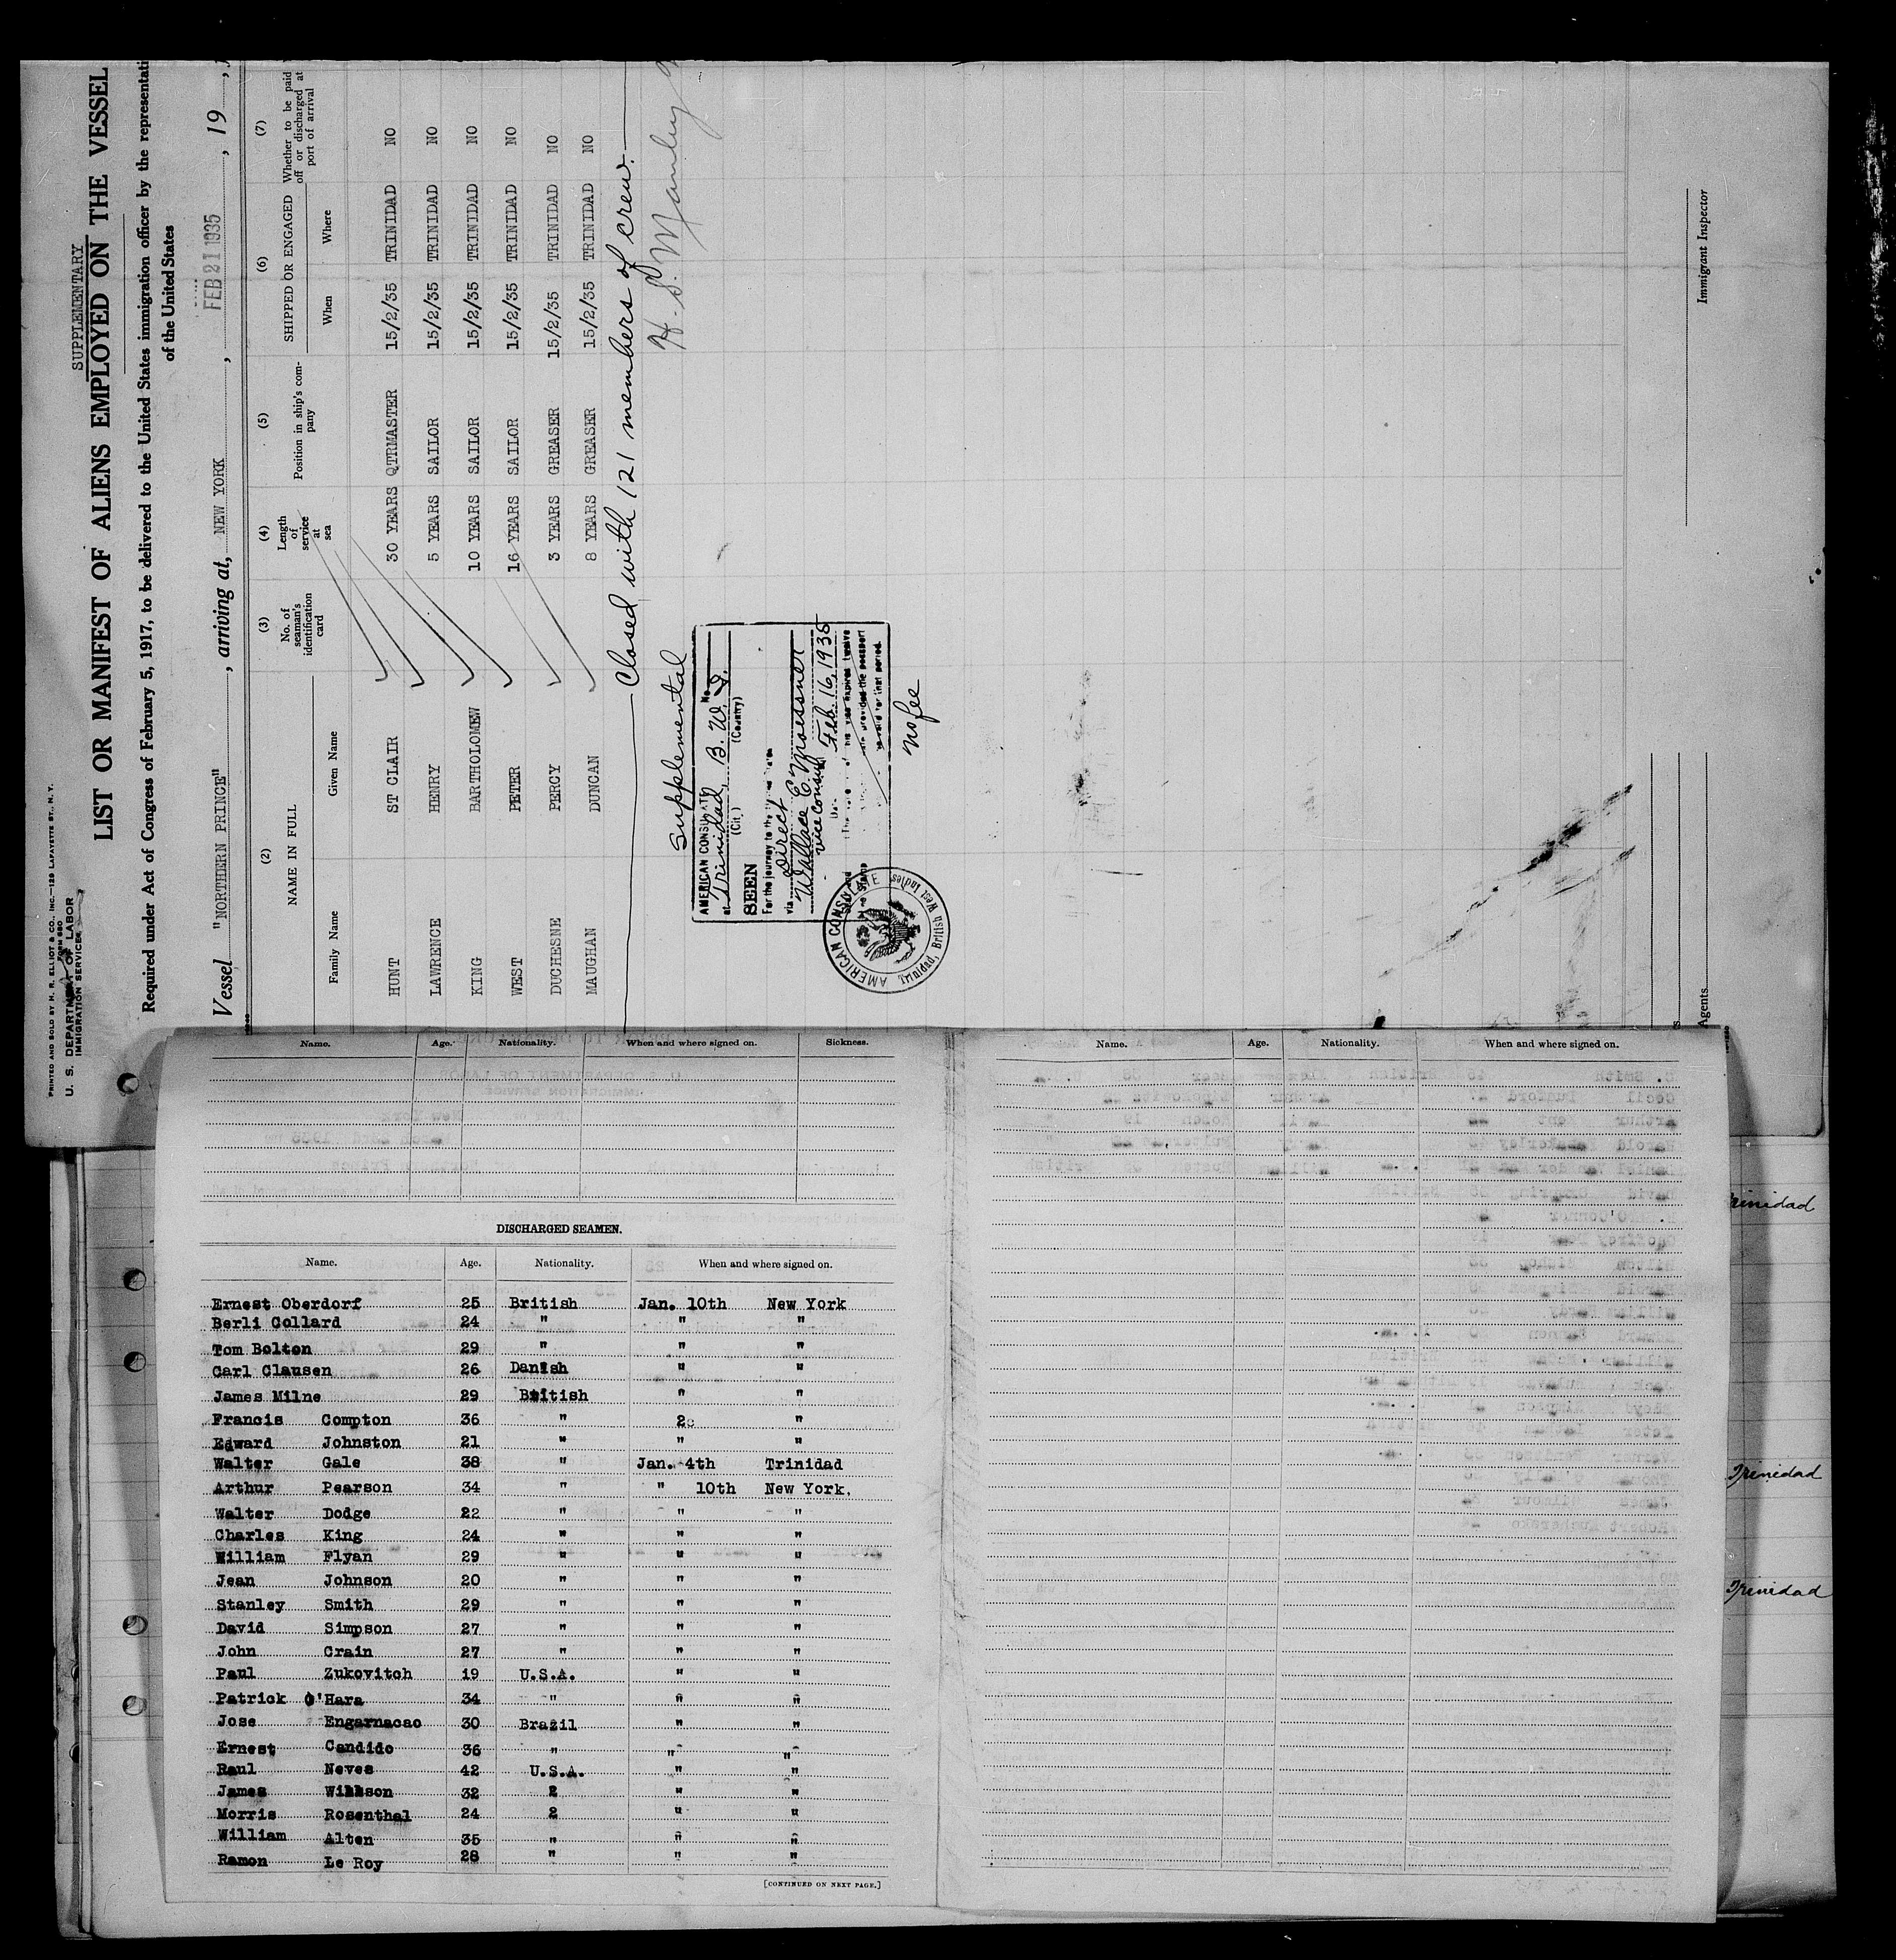 PRINTED AND SOLD BY H. R. ELLIOT & CO., INC.—129 LAFAYETTE ST., N. Y.
FORM 680
U. S. DEPARTMENT OF LABOR
IMMIGRATION SERVICE
SUPPLEMENTARY
LIST OR MANIFEST OF ALIENS EMPLOYED ON THE VESSEL
Required under Act of Congress of February 5, 1917, to be delivered to the United States immigration officer by the representati
of the United States
Vessel "NORTHERN PRINCE", arriving at, NEW YORK, FEB 21 1935, 19
(2) (3) (4) (5) (6) (7)
NAME IN FULL No. of seaman's identification card Length of service at sea Position in ship's company SHIPPED OR ENGAGED Whether to be paid off or discharged at port of arrival
Family Name Given Name When Where
HUNT ST CLAIR 30 YEARS QTRMASTER 15/2/35 TRINIDAD NO
LAWRENCE HENRY 5 YEARS SAILOR 15/2/35 TRINIDAD NO
KING BARTHOLOMEW 10 YEARS SAILOR 15/2/35 TRINIDAD NO
WEST PETER 16 YEARS SAILOR 15/2/35 TRINIDAD NO
DUCHESNE PERCY 3 YEARS GREASER 15/2/35 TRINIDAD NO
MAUGHAN DUNCAN 8 YEARS GREASER 15/2/35 TRINIDAD NO
Closed with 121 members of crew.
H. S. Manley
Supplemental
AMERICAN CONSULATE No
at Trinidad, B. W. I.
(City) (Country)
SEEN
For the journey to the
via direct
Wallace E. Moessner
Vice Consul
Feb. 16, 1935
no fee
AMERICAN CONSULATE
Trinidad, British West Indies
Agents
Immigrant Inspector
Name. Age. Nationality. When and where signed on. Sickness.
DISCHARGED SEAMEN.
Name. Age. Nationality. When and where signed on.
Ernest Oberdorf 25 British Jan. 10th New York
Berli Collard 24 " " "
Tom Bolton 29 " " "
Carl Clausen 26 Danish " "
James Milne 29 British " "
Francis Compton 36 " 2 "
Edward Johnston 21 " " "
Walter Gale 38 " Jan. 4th Trinidad
Arthur Pearson 34 " " 10th New York.
Walter Dodge 22 " " "
Charles King 24 " " "
William Flyan 29 " " "
Jean Johnson 20 " " "
Stanley Smith 29 " " "
David Simpson 27 " " "
John Grain 27 " " "
Paul Zukovitch 19 U.S.A. " "
Patrick O'Hara 34 " " "
Jose Engarnacao 30 Brazil " "
Ernest Candido 36 " " "
Raul Neves 42 U.S.A. " "
James 32 2 " "
Morris Rosenthal 24 2 " "
William Alten 35 " " "
Ramon Le Roy 28 " " "
[CONTINUED ON NEXT PAGE.]
Name. Age. Nationality. When and where signed on.
Trinidad
Trinidad
Trinidad